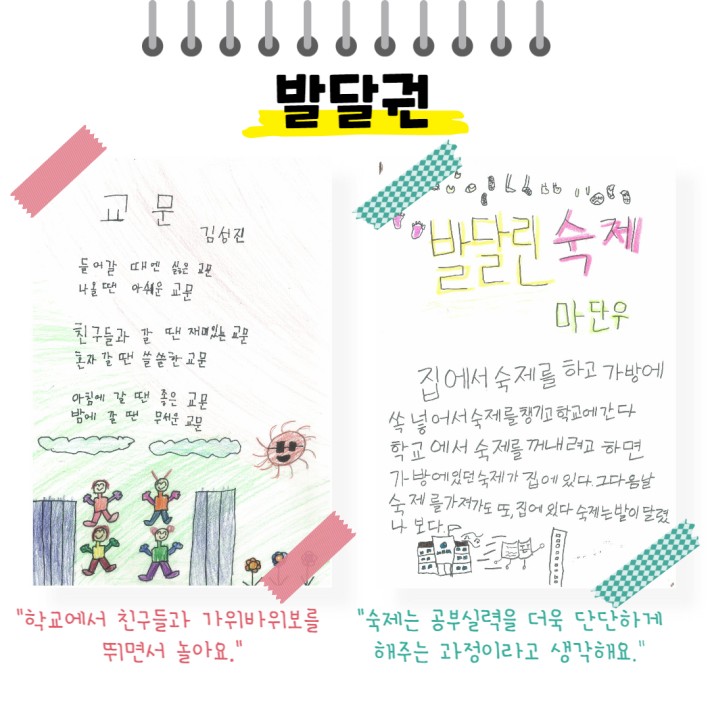 발달권
교문
김성진
들어갈 때엔 싫은 교문
나올땐 아쉬운 교문
친구들과 갈 땐 재미있는 교문
혼자 갈 땐 쓸쓸한 교문
아침에 갈 땐 좋은 교문
밤에 갈 땐 무서운 교문
"학교에서 친구들과 가위바위보를
뛰면서 놀아요."
발달린 숙제
마단우
집에서 숙제를 하고 가방에
쏙 넣어서 숙제를 챙기고 학교에 간다
학교에서 숙제를 꺼내려고 하면
가방에 있던 숙제가 집에 있다. 그 다음날
숙제를 가져가도 또, 집에 있다 숙제는 발이 달렸
나 보다.
"숙제는 공부실력을 더욱 단단하게
해주는 과정이라고 생각해요."